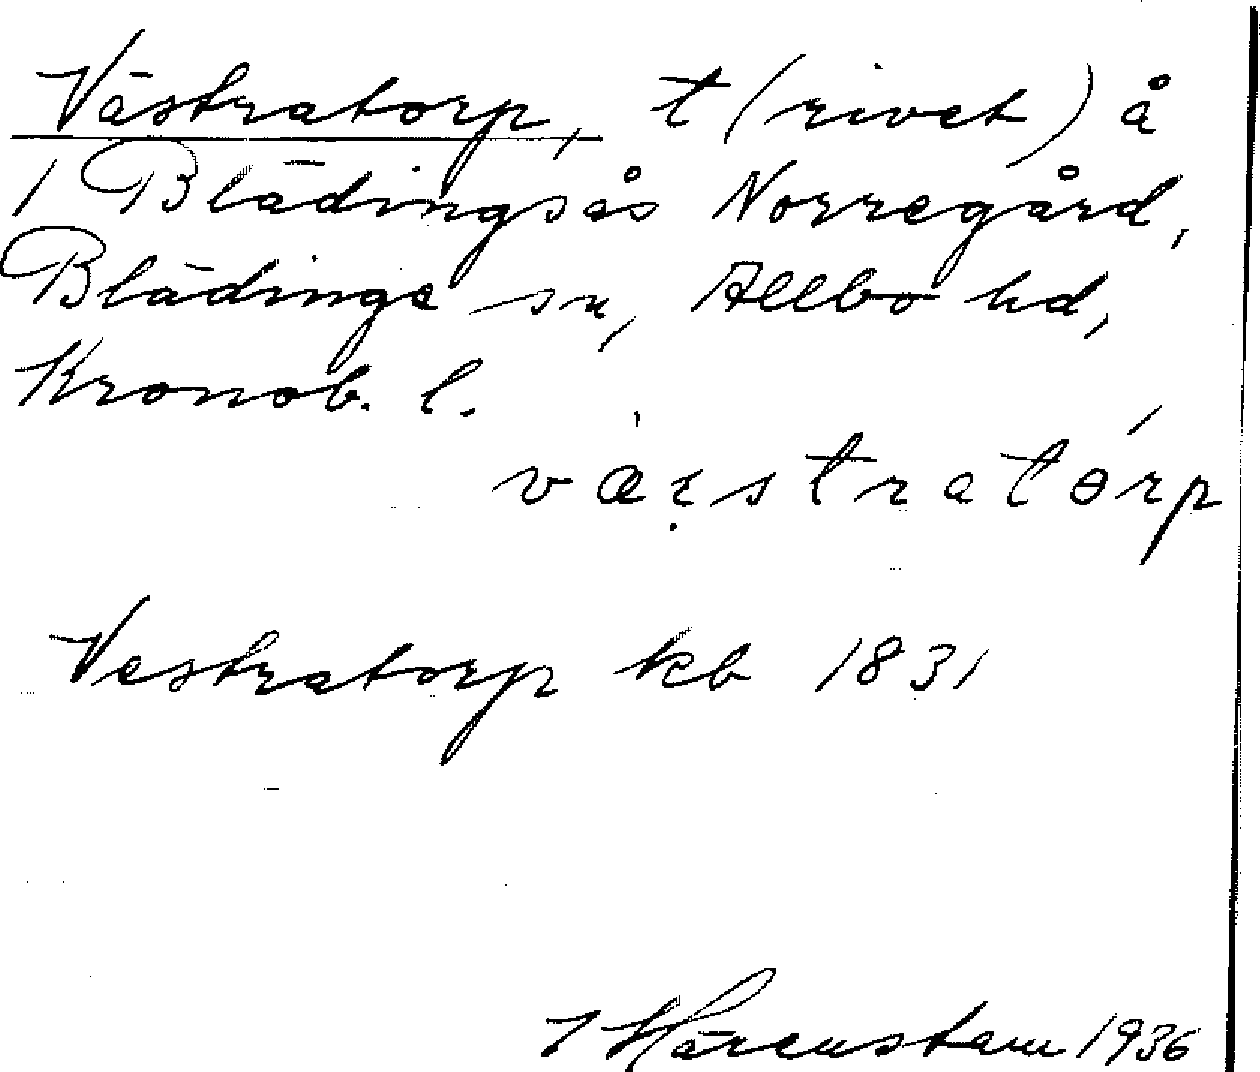 Västratorp, t (rivet) å
1 Blädingsås Norregård,
Blädinge sn, Allbo hd,
Kronob. l.
Vestratorp kb 1831
J Härenstam 1936